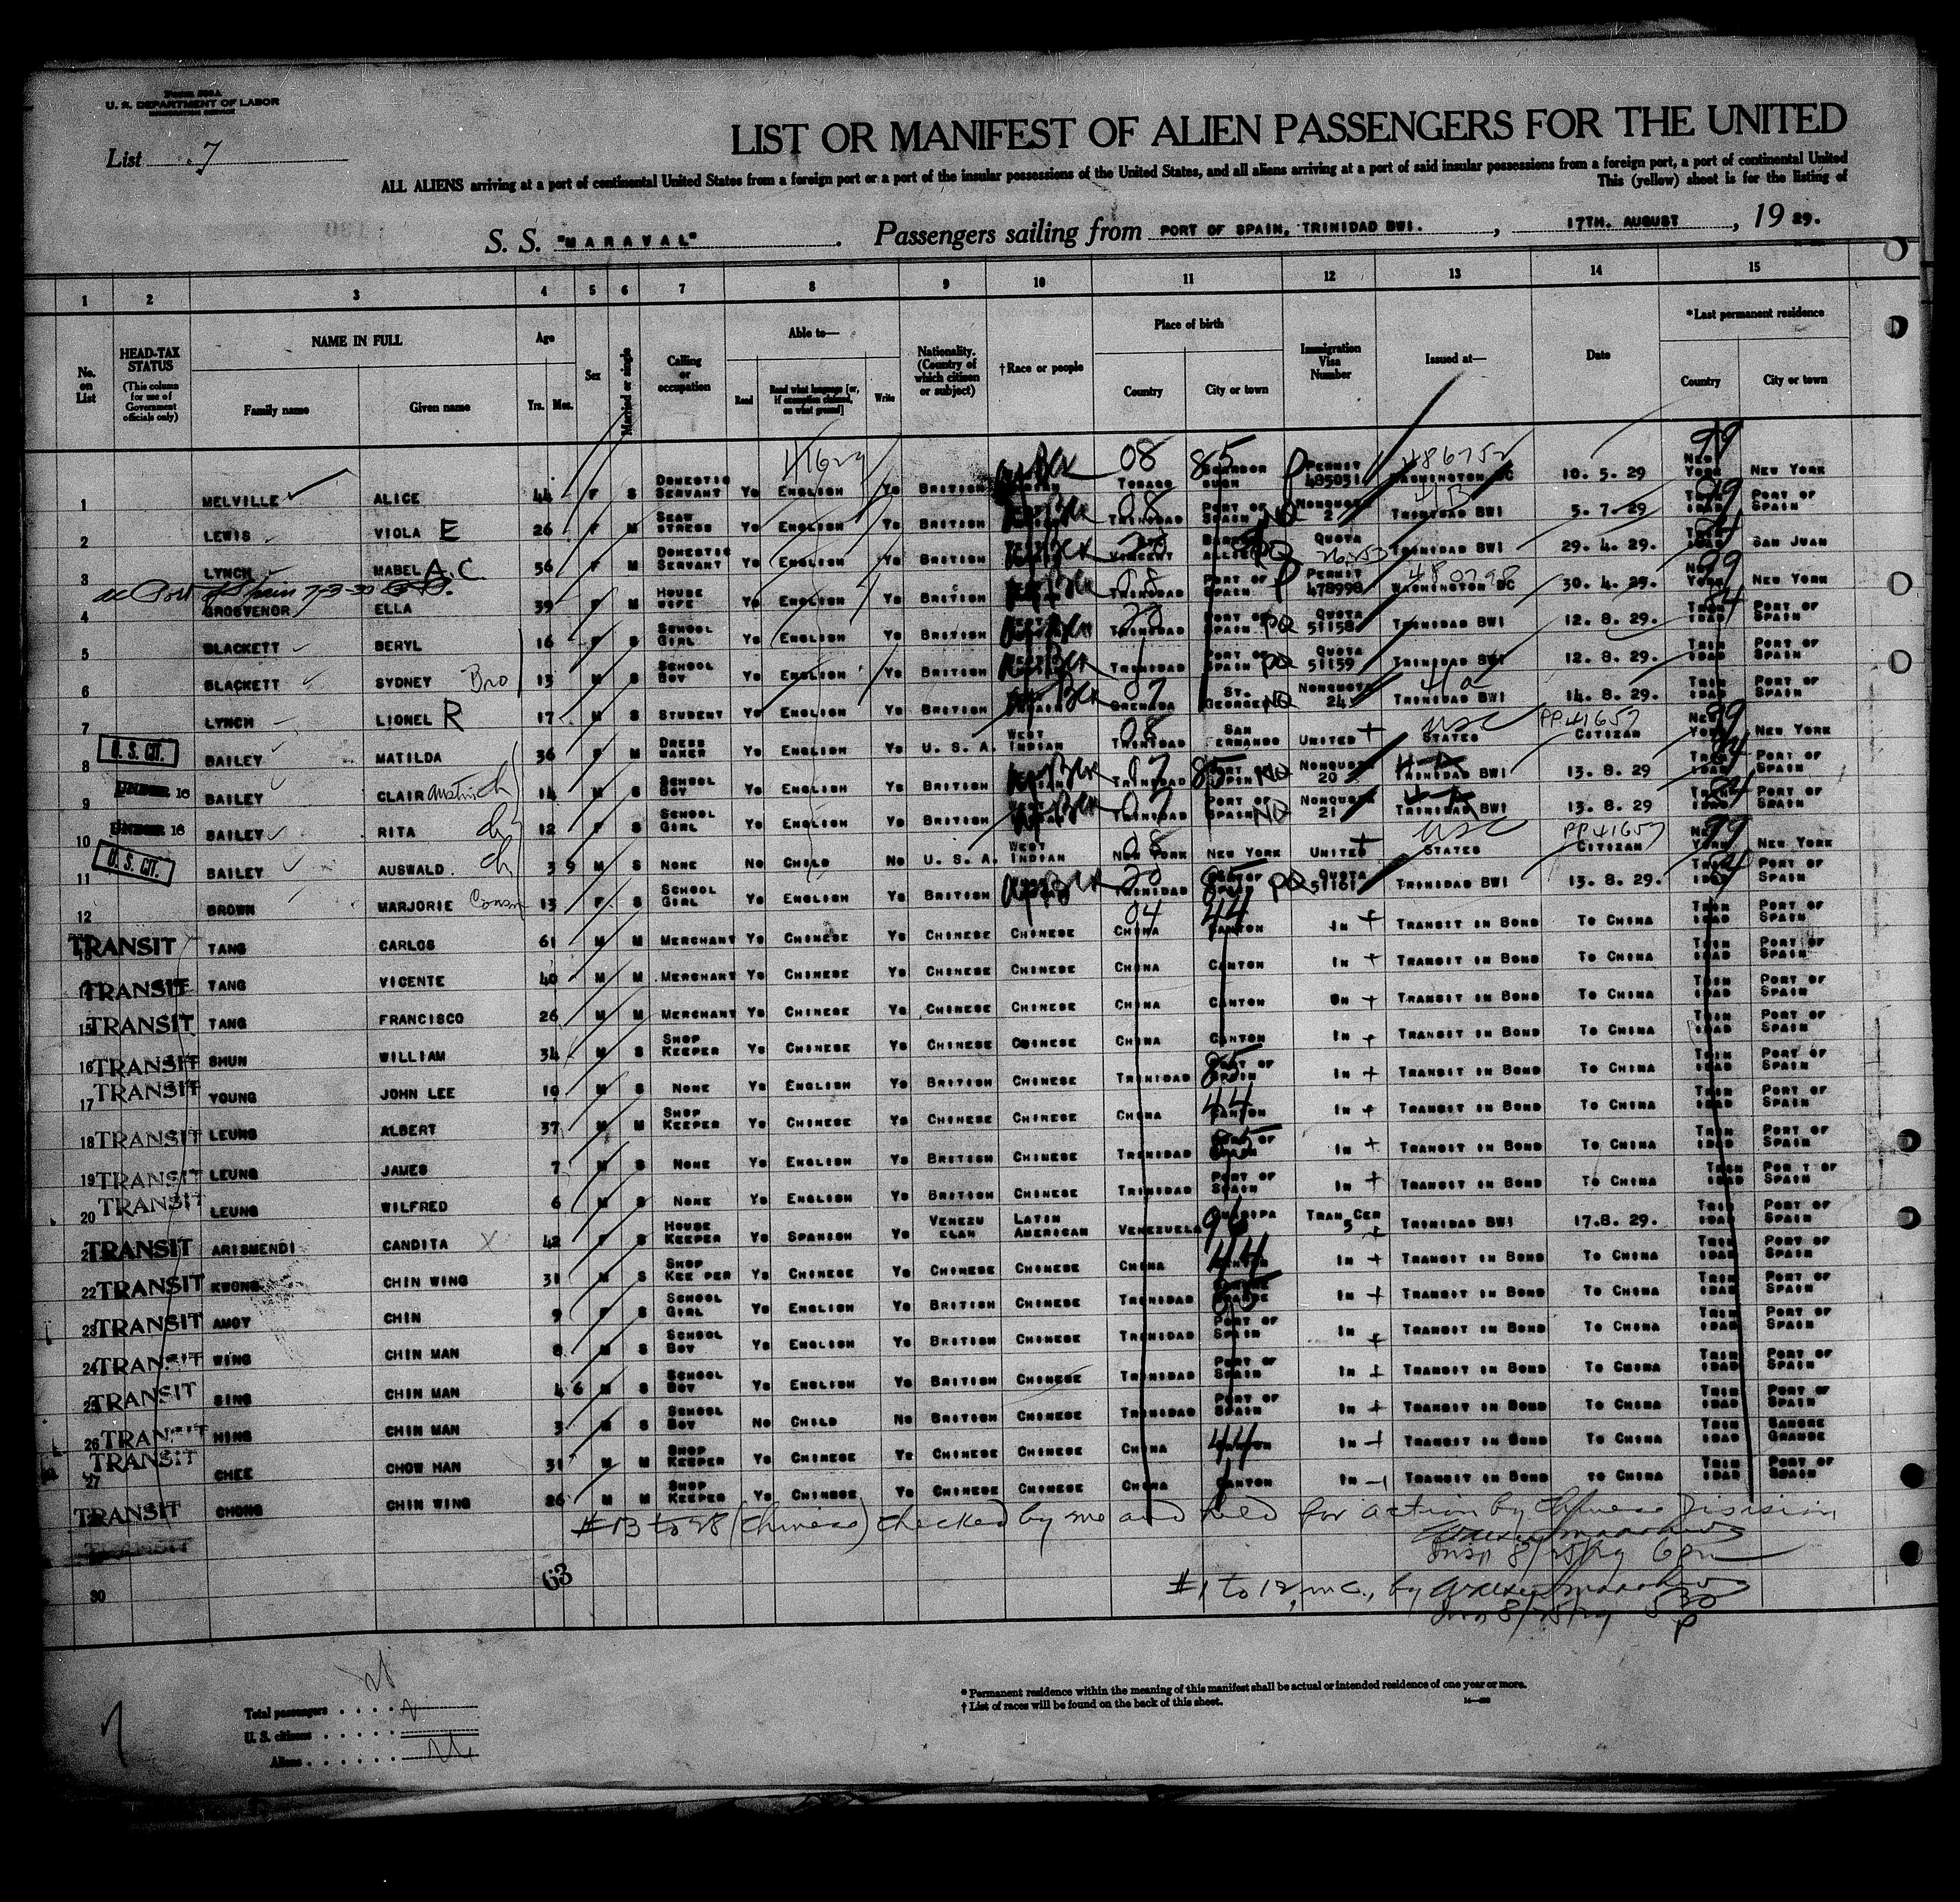 Form 500A
U. S. DEPARTMENT OF LABOR
IMMIGRATION SERVICE
List 7
LIST OR MANIFEST OF ALIEN PASSENGERS FOR THE UNITED
ALL ALIENS arriving at a port of continental United States from a foreign port or a port of the insular possessions of the United States, and all aliens arriving at a port of said insular possessions from a foreign port, a port of continental United
This (yellow) sheet is for the listing of
S. S. "MARAVAL" Passengers sailing from PORT OF SPAIN, TRINIDAD BWI. , 17TH. AUGUST , 19 29.
1 2 3 4 5 6 7 8 9 10 11 12 13 14 15
No. on List
HEAD-TAX STATUS (This column for use of Government officials only)
NAME IN FULL Family name Given name
Age Yrs. Mos.
Sex
Married or single
Calling or occupation
Able to— Read Read what language [or, if exemption claimed, on what ground] Write
Nationality. (Country of which citizen or subject)
†Race or people
Place of birth Country City or town
Immigration Visa Number
Issued at—
Date
*Last permanent residence Country City or town
1 MELVILLE ALICE 44 F S DOMESTIC SERVANT YS ENGLISH YS BRITISH 08 TOBAGO 85 P PERMIT 485051 486752 WASHINGTON DC 10. 5. 29 99 NEW YORK NEW YORK
2 LEWIS VIOLA E 26 F M SEAM STRESS YS ENGLISH YS BRITISH 08 TRINIDAD PORT OF SPAIN NQ NONQUOTA 2 4B TRINIDAD BWI 5. 7. 29 TRIN IDAD PORT OF SPAIN
3 LYNCH MABEL A.C. 56 F M DOMESTIC SERVANT YS ENGLISH YS BRITISH VINCENT PQ QUOTA TRINIDAD BWI 29. 4. 29. 84 SAN JUAN
4 GROSVENOR ELLA 39 F M HOUSE WIFE YS ENGLISH YS BRITISH 08 TRINIDAD PORT OF SPAIN P PERMIT 478998 480798 WASHINGTON DC 30. 4. 29. 99 NEW YORK NEW YORK
5 BLACKETT BERYL 16 F S SCHOOL GIRL YS ENGLISH YS BRITISH 20 TRINIDAD PORT OF SPAIN PQ QUOTA 51158 TRINIDAD BWI 12. 8. 29. 84 TRIN IDAD PORT OF SPAIN
6 BLACKETT SYDNEY Bro 13 M S SCHOOL BOY YS ENGLISH YS BRITISH TRINIDAD PORT OF SPAIN PQ QUOTA 51159 TRINIDAD BWI 12. 8. 29. TRIN IDAD PORT OF SPAIN
7 LYNCH LIONEL R 17 M S STUDENT YS ENGLISH YS BRITISH 07 GRENADA ST. GEORGE NQ NONQUOTA 24 4a TRINIDAD BWI 14. 8. 29. TRIN IDAD PORT OF SPAIN
U. S. CIT. 8 BAILEY MATILDA 36 F M DRESS MAKER YS ENGLISH YS U. S. A. WEST INDIAN 08 TRINIDAD SAN FERNANDO UNITED USC STATES PP 41657 CITIZAN 99 NEW YORK NEW YORK
UNDER 16 9 BAILEY CLAIR Austin ch 14 M S SCHOOL BOY YS ENGLISH YS BRITISH 07 TRINIDAD 85 PORT OF SPAIN NQ NONQUOTA 20 4-A TRINIDAD BWI 13. 8. 29 84 TRIN IDAD PORT OF SPAIN
UNDER 16 10 BAILEY RITA ch 12 F S SCHOOL GIRL YS ENGLISH YS BRITISH 07 TRINIDAD PORT OF SPAIN NQ NONQUOTA 21 4-A TRINIDAD BWI 13. 8. 29 84 TRIN IDAD PORT OF SPAIN
U. S. CIT. 11 BAILEY AUSWALD. ch 3 9 M S NONE NO CHILD NO U. S. A. WEST INDIAN 08 NEW YORK NEW YORK UNITED USC STATES PP 41657 CITIZAN 99 NEW YORK NEW YORK
12 BROWN MARJORIE Cousin 13 F S SCHOOL GIRL YS ENGLISH YS BRITISH 20 TRINIDAD PORT OF SPAIN PQ QUOTA 51161 TRINIDAD BWI 13. 8. 29. 84 TRIN IDAD PORT OF SPAIN
TRANSIT TANG CARLOS 61 M M MERCHANT YS CHINESE YS CHINESE CHINESE 04 CHINA 44 CANTON IN TRANSIT IN BOND TO CHINA TRIN IDAD PORT OF SPAIN
TRANSIT TANG VICENTE 40 M M MERCHANT YS CHINESE YS CHINESE CHINESE CHINA CANTON IN TRANSIT IN BOND TO CHINA TRIN IDAD PORT OF SPAIN
15 TRANSIT TANG FRANCISCO 26 M M MERCHANT YS CHINESE YS CHINESE CHINESE CHINA CANTON IN TRANSIT IN BOND TO CHINA TRIN IDAD PORT OF SPAIN
16 TRANSIT SHUN WILLIAM 34 M S SHOP KEEPER YS CHINESE YS CHINESE CHINESE CHINA CANTON IN TRANSIT IN BOND TO CHINA TRIN IDAD PORT OF SPAIN
17 TRANSIT YOUNG JOHN LEE 10 M S NONE YS ENGLISH YS BRITISH CHINESE TRINIDAD 85 PORT OF SPAIN IN TRANSIT IN BOND TO CHINA TRIN IDAD PORT OF SPAIN
18 TRANSIT LEUNG ALBERT 37 M M SHOP KEEPER YS CHINESE YS CHINESE CHINESE CHINA 44 CANTON IN TRANSIT IN BOND TO CHINA TRIN IDAD PORT OF SPAIN
19 TRANSIT LEUNG JAMES 7 M S NONE YS ENGLISH YS BRITISH CHINESE TRINIDAD 85 PORT OF SPAIN IN TRANSIT IN BOND TO CHINA TRIN IDAD PORT OF SPAIN
20 TRANSIT LEUNG WILFRED 6 M S NONE YS ENGLISH YS BRITISH CHINESE TRINIDAD PORT OF SPAIN IN TRANSIT IN BOND TO CHINA TRIN IDAD PORT OF SPAIN
21 TRANSIT ARISMENDI CANDITA X 42 F S HOUSE KEEPER YS SPANISH YS VENEZU ELAN LATIN AMERICAN VENEZUELA 96 TRAN CER 5 TRINIDAD BWI 17.8. 29. TRIN IDAD PORT OF SPAIN
22 TRANSIT KWONG CHIN WING 31 M S SHOP KEE PER YS CHINESE YS CHINESE CHINESE CHINA 44 CANTON IN TRANSIT IN BOND TO CHINA TRIN IDAD PORT OF SPAIN
23 TRANSIT AMOY CHIN 9 F S SCHOOL GIRL YS ENGLISH YS BRITISH CHINESE TRINIDAD 85 IN TRANSIT IN BOND TO CHINA TRIN IDAD PORT OF SPAIN
24 TRANSIT WING CHIN MAN 8 M S SCHOOL BOY YS ENGLISH YS BRITISH CHINESE TRINIDAD PORT OF SPAIN IN TRANSIT IN BOND TO CHINA TRIN IDAD PORT OF SPAIN
25 TRANSIT SING CHIN MAN 4 6 M S SCHOOL BOY YS ENGLISH YS BRITISH CHINESE TRINIDAD PORT OF SPAIN IN TRANSIT IN BOND TO CHINA TRIN IDAD PORT OF SPAIN
26 TRANSIT HING CHIN MAN 3 M S SCHOOL BOY NO CHILD NO BRITISH CHINESE TRINIDAD PORT OF SPAIN IN TRANSIT IN BOND TO CHINA TRIN IDAD PORT OF SPAIN
27 TRANSIT CHEE CHOW HAN 31 M M SHOP KEEPER YS CHINESE YS CHINESE CHINESE CHINA 44 CANTON IN TRANSIT IN BOND TO CHINA TRIN IDAD SANGRE GRANDE
TRANSIT CHONG CHIN WING 26 M M SHOP KEEPER YS CHINESE YS CHINESE CHINESE CHINA CANTON IN TRANSIT IN BOND TO CHINA TRIN IDAD PORT OF SPAIN
#13 to 28 (Chinese) checked by me and held for action by Chinese Division
TRANSIT
Insp 8/25/29 6 pm
30 63 #1 to 12, inc., by
Insp 8/25/29 5 30 P
Total passengers
U. S. citizens
Aliens
7
* Permanent residence within the meaning of this manifest shall be actual or intended residence of one year or more.
† List of races will be found on the back of this sheet.